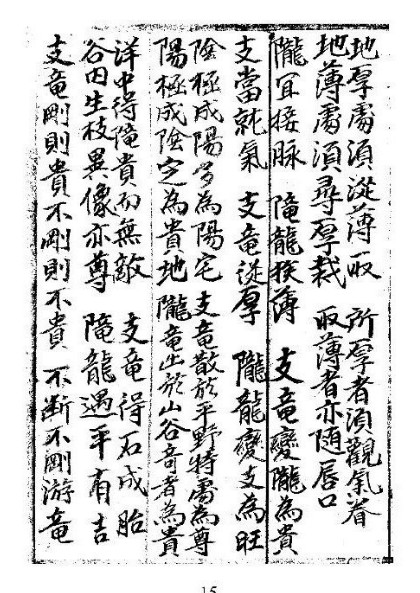 地厚處須從薄取 所厚者須觀氣脊
地薄處須尋厚裁 取薄者亦随唇口
隴冝接脉 隴龍挨薄 支竜變隴為貴
支當就氣 支竜從厚 隴龍變支為旺
陰極成陽多為陽宅 支竜散於平野特處為尊
陽極成陰定為貴地 隴竜出於山谷奇者為貴
洋中得隴貴而無敵 支竜得石成胎
谷内生枝異像亦尊 隴龍遇平有吉
支竜剛則貴不剛則不貴 不斷不剛游竜
15